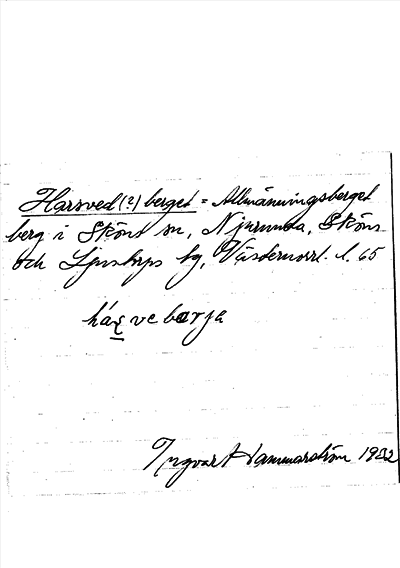 Harsved(?)berget = Allmänningsberget
berg i Sköns sn, Njurunda, Sköns
och Ljustorps tg, Västernorrl. l. 65
háṣvebarja
Ingvar Hammarström 1932